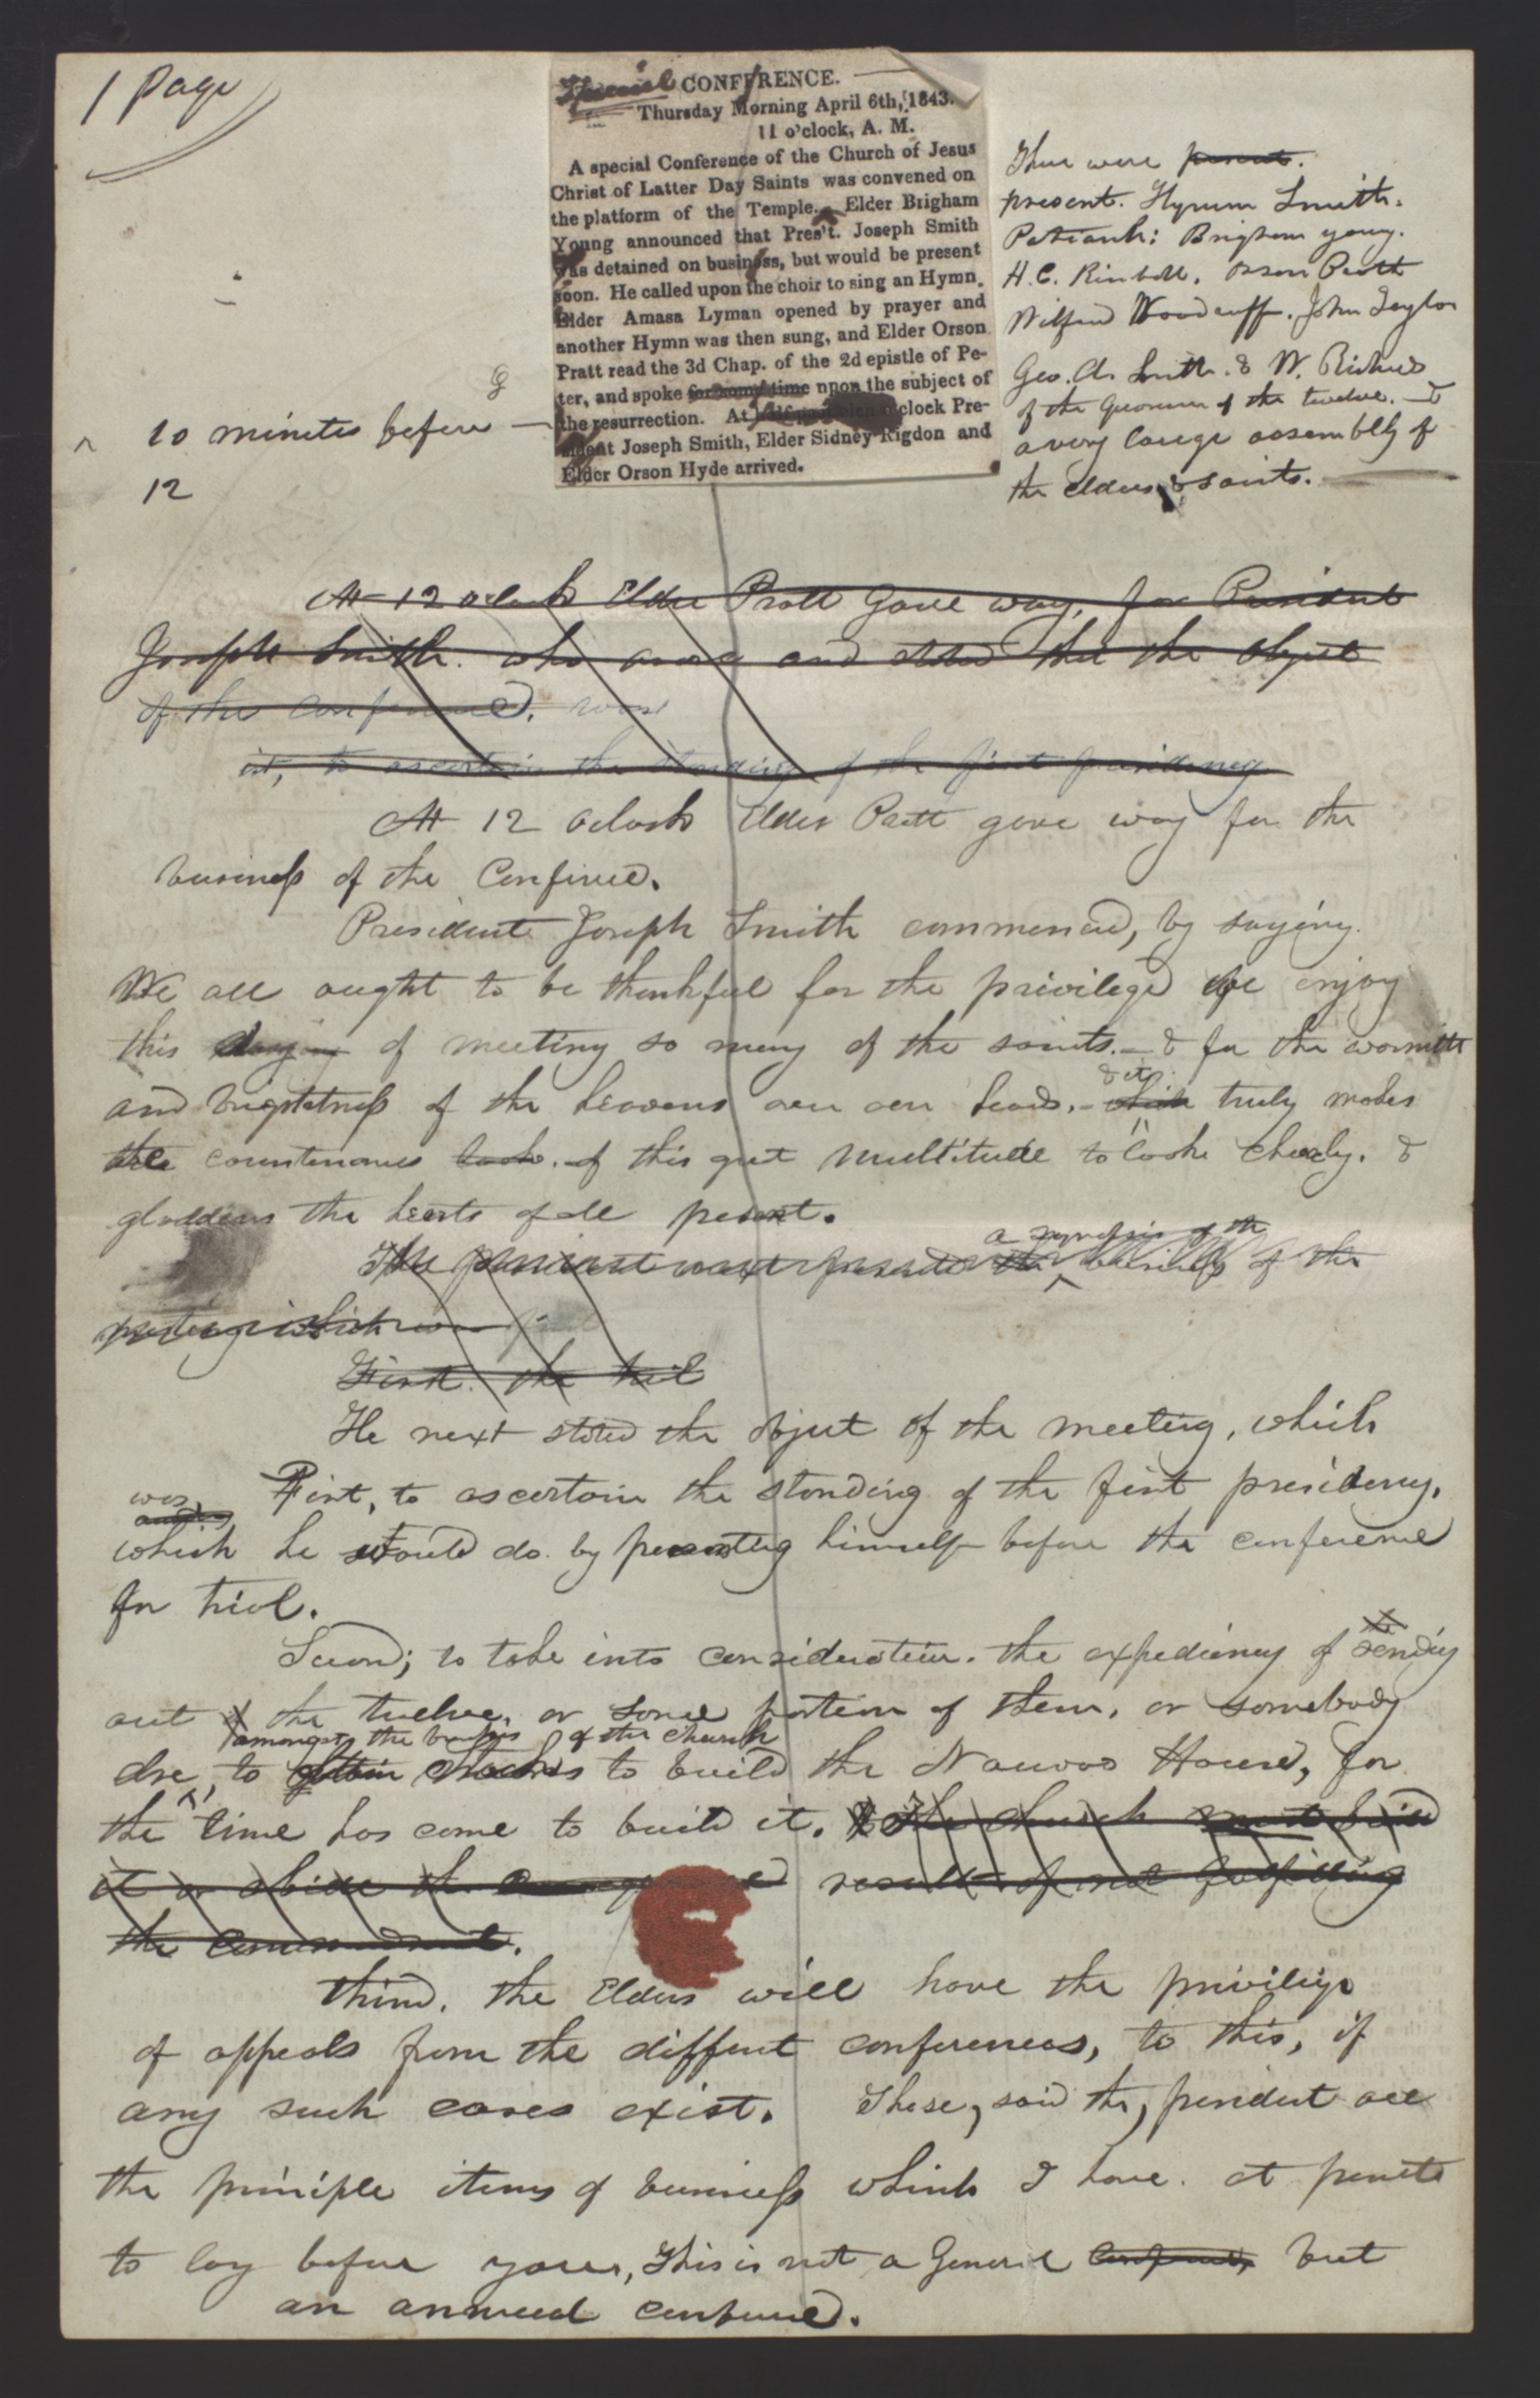 1 Page
Special CONFERENCE.
Thursday Morning April 6th, 1843.
11 o'clock, A. M.
A special Conference of the Church of Jesus
Christ of Latter Day Saints was convened on
the platform of the Temple. Elder Brigham
Young announced that Pres't. Joseph Smith
was detained on business, but would be present
soon. He called upon the choir to sing an Hymn.
Elder Amasa Lyman opened by prayer and
another Hymn was then sung, and Elder Orson
Pratt read the 3d Chap. of the 2d epistle of Pe-
ter, and spoke for some time npon the subject of
the resurrection. At half past o'clock Pre-
sident Joseph Smith, Elder Sidney Rigdon and
Elder Orson Hyde arrived.
There were present.
present. Hyrum Smith.
Patriarch: Brigham young.
H. C. Kimball, Orson Pratt
Wilford Woodruff. John Taylor
Geo. A. Smith. & W. Richards
of the Quorum of the twelve. &
a very large assembly of
the elders & saints.
10 minutes before
12
At 12 oclock Elder Pratt gave way, for President
Joseph Smith. who arose and stated that the object
of the conference, was
1st, to ascertain the standing of the first presidency
At 12 oclock Elder Pratt gave way for the
business of the Conference.
President Joseph Smith commenced, by saying.
We all ought to be thankful for the privilege we enjoy
this day of meeting so many of the saints.— & for the warmth
and brightness of the heavens over our heads.— which & it truly makes
the countenances look. of this great multitude to look cheerly. &
gladdens the hearts of all present.
The president next presented the a synopsis of the business of the
meeting which was
First. the trial
He next stated the object of the meeting, which
was, First, to ascertain the standing of the first presidency,
which he should do. by presenting himself before the conference
for trial.
Second; to take into consideration. the expediency of sending
out the twelve, or some portion of them, or somebody
amongst the branches of the church
else, to obtain stocks to build the Nauvoo House, for
the time has come to build it. & The church must build
it or abide the result of not fulfilling
the commandment.
third. the Elders will have the privilige
of appeals from the different conferences, to this, if
any such cases exist. These, said the, president are
the priniple items of business which I have. at present
to lay before you, This is not a General conference, but
an annual conference.